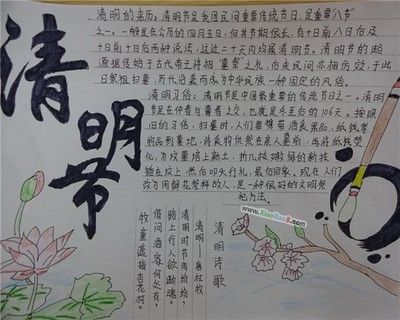 清明节
清明的来历:清明节是我国民间重要传统节日,是重要"八节"
之一,一般是在公历的四月五日,但其节期很长,有十日前八日后及
十日前十日后两种说法,这近二十天内均属清明节。清明节的起
源据传始于古代帝王将相"墓祭"之礼,后来民间亦相仿效,于此
日祭祖扫墓,历代沿袭而成为中华民族一种固定的风俗。
清明习俗:清明节是中国最重要的传统节日之一。清明
节是在仲春与暮春之交,也就是冬至后的106天。按照
旧的习俗,扫墓时,人们要携带酒食果品,纸钱等
物品到墓地,将食物供祭在亲人墓前,再将纸钱焚
化,为坟墓培上新土,折几枝嫩绿的新枝
插在坟上,然后叩头行礼,最后回家。现在人们
改为用鲜花祭拜故人,是一种很好的文明祭
祀方法。
www.XiaoBao8.com
清明诗歌
清明—唐杜牧
清明时节雨纷纷,
路上行人欲断魂。
借问酒家何处有,
牧童遥指杏花村。